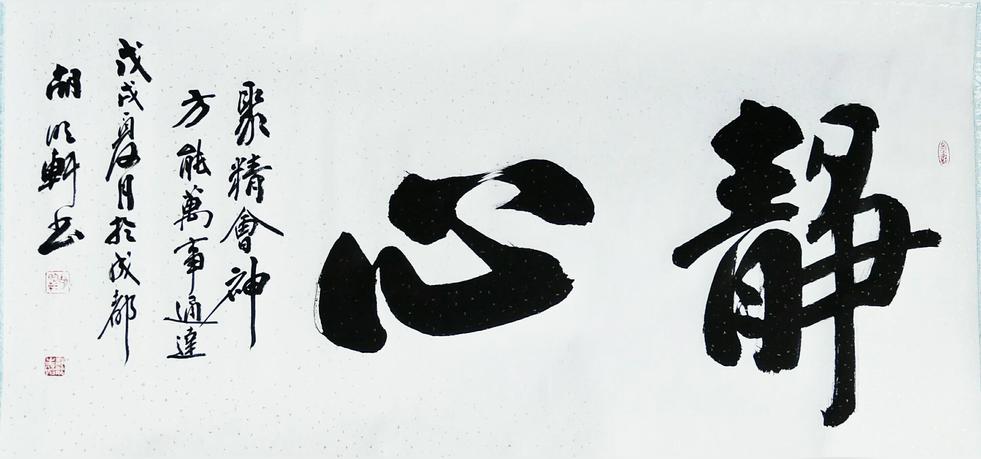 靜心
聚精會神
方能萬事通達
戊戌夏月於成都
胡明軒書